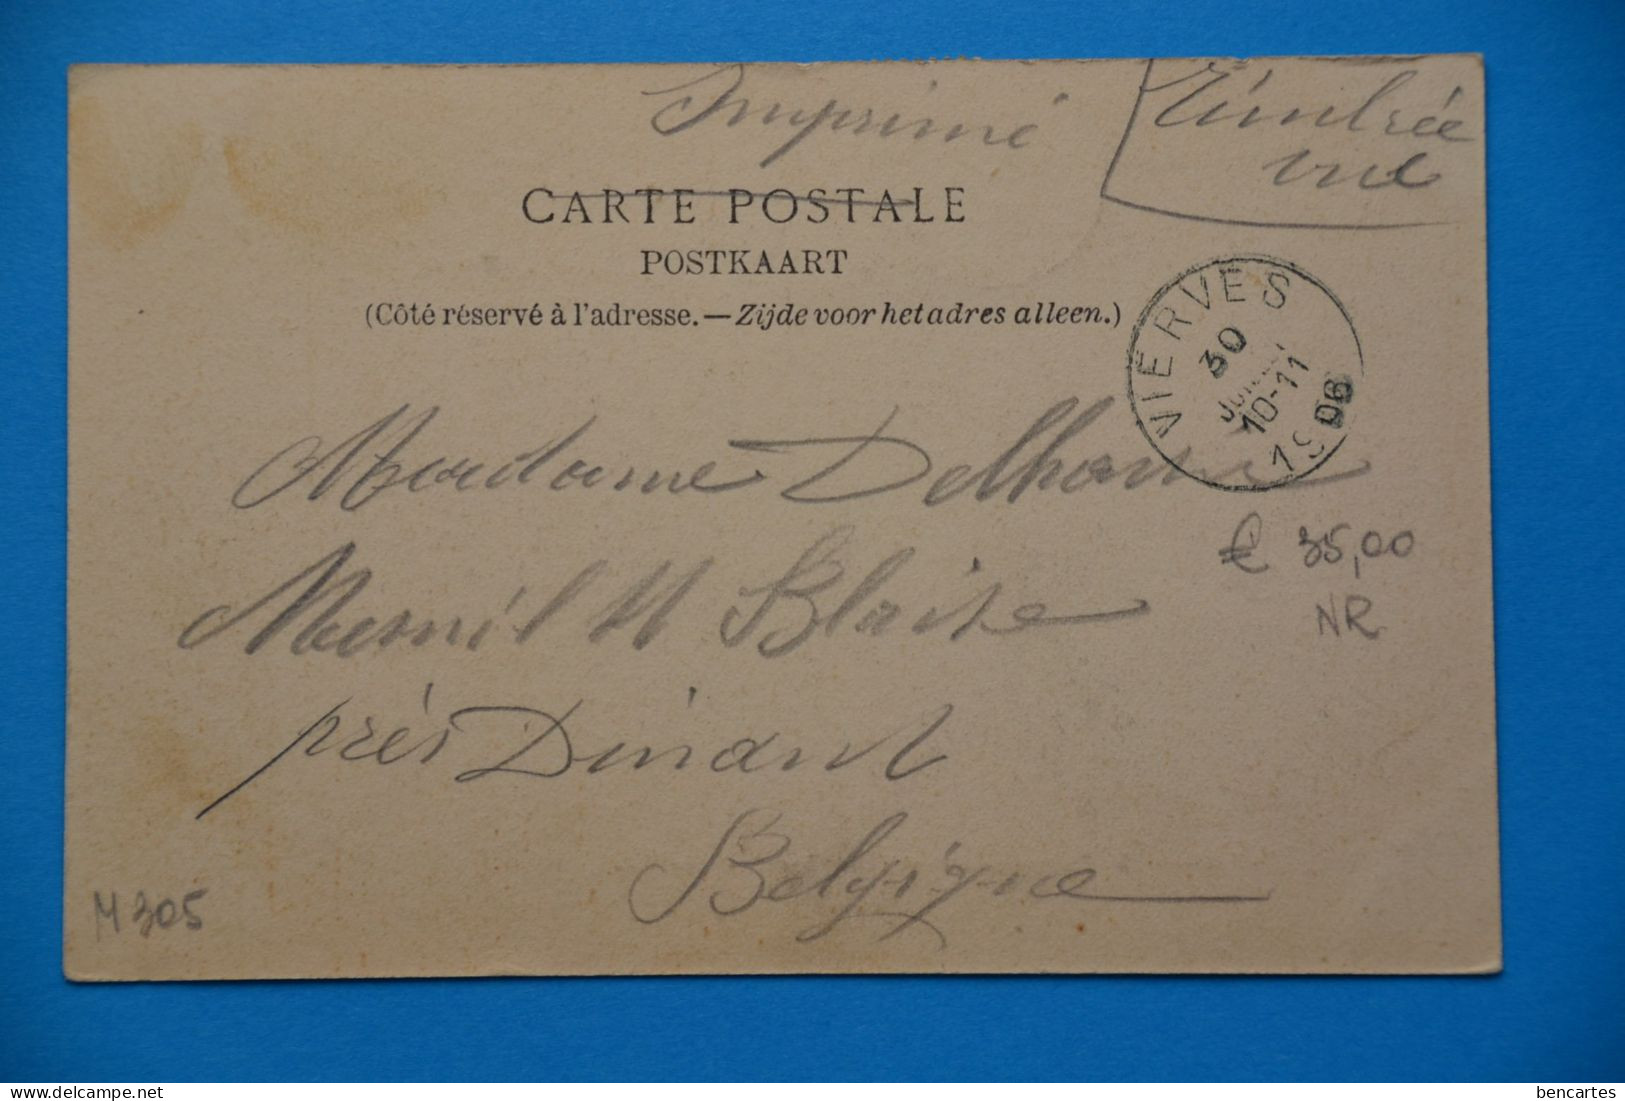 Imprimé
Timbrée
vue
CARTE POSTALE
POSTKAART
(Côté réservé à l'adresse. — Zijde voor het adres alleen.)
VIERVES
30
JUIL
10-11
1906
Madame Delhomme
Mesnil St Blaise
près Dinant
Belgique
€ 35,00
NR
M 305
bencartes